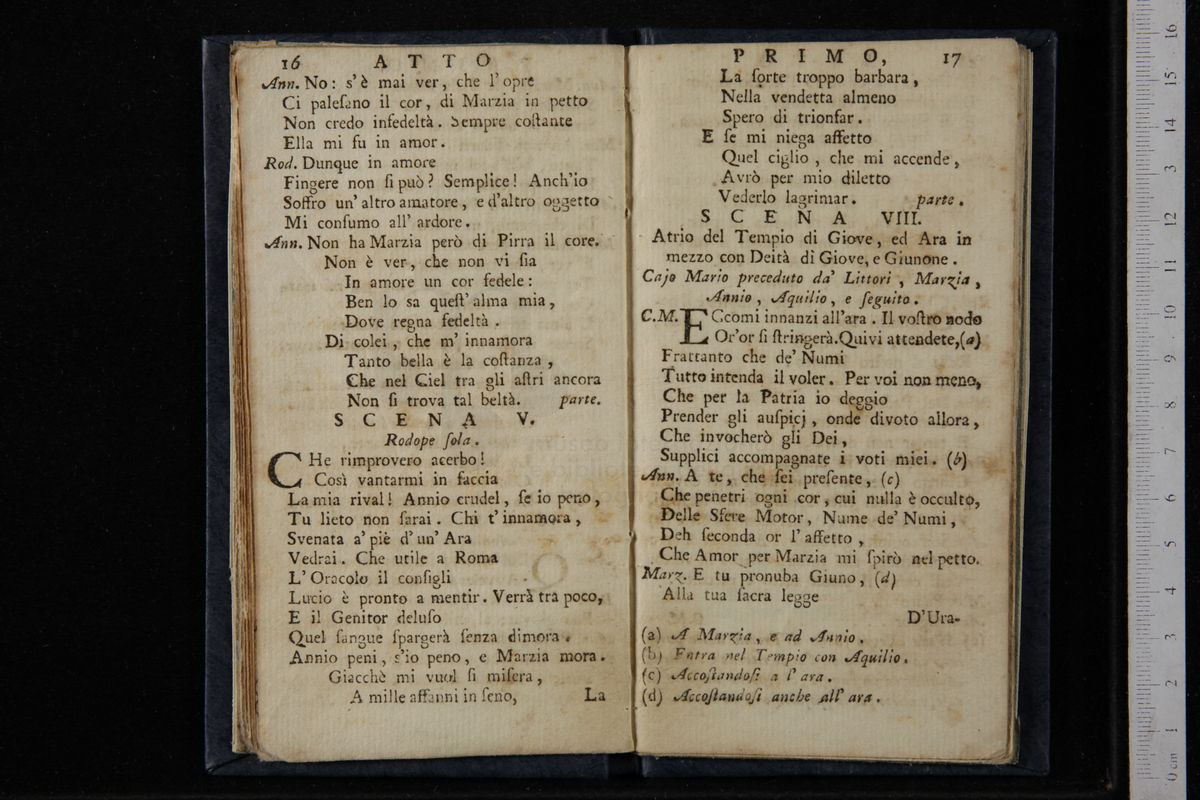 16 ATTO
Ann. No: s'è mai ver, che l'opre
Ci paleſano il cor, di Marzia in petto
Non credo infedeltà. Sempre coſtante
Ella mi fu in amor.
Rod. Dunque in amore
Fingere non ſi può? Semplice! Anch'io
Soffro un'altro amatore, e d'altro oggetto
Mi conſumo all'ardore.
Ann. Non ha Marzia però di Pirra il core.
Non è ver, che non vi ſia
In amore un cor fedele:
Ben lo sa queſt'alma mia,
Dove regna fedeltà.
Di colei, che m'innamora
Tanto bella è la coſtanza,
Che nel Ciel tra gli aſtri ancora
Non ſi trova tal beltà. parte.
SCENA V.
Rodope ſola.
CHe rimprovero acerbo!
Così vantarmi in faccia
La mia rival! Annio crudel, ſe io peno,
Tu lieto non ſarai. Chi t'innamora,
Svenata a' piè d'un'Ara
Vedrai. Che utile a Roma
L'Oracolo il conſigli
Lucio è pronto a mentir. Verrà tra poco,
E il Genitor deluſo
Quel ſangue ſpargerà ſenza dimora.
Annio peni, s'io peno, e Marzia mora.
Giacchè mi vuol ſi miſera,
A mille affanni in ſeno,
La
PRIMO, 17
La ſorte troppo barbara,
Nella vendetta almeno
Spero di trionfar.
E ſe mi niega affetto
Quel ciglio, che mi accende,
Avrò per mio diletto
Vederlo lagrimar. parte.
SCENA VIII.
Atrio del Tempio di Giove, ed Ara in
mezzo con Deità di Giove, e Giunone.
Cajo Mario preceduto da' Littori, Marzia,
Annio, Aquilio, e ſeguito.
C.M. ECcomi innanzi all'ara. Il voſtro nodo
Or'or ſi ſtringerà. Quivi attendete, (a)
Frattanto che de' Numi
Tutto intenda il voler. Per voi non meno,
Che per la Patria io deggio
Prender gli auſpicj, onde divoto allora,
Che invocherò gli Dei,
Supplici accompagnate i voti miei. (b)
Ann. A te, che ſei preſente, (c)
Che penetri ogni cor, cui nulla è occulto,
Delle Sfere Motor, Nume de' Numi,
Deh ſeconda or l'affetto,
Che Amor per Marzia mi ſpirò nel petto.
Marz. E tu pronuba Giuno, (d)
Alla tua ſacra legge
D'Ura-
(a) A Marzia, e ad Annio.
(b) Entra nel Tempio con Aquilio.
(c) Accoſtandoſi a l'ara.
(d) Accoſtandoſi anche all'ara.
0 cm 1 2 3 4 5 6 7 8 9 10 11 12 13 14 15 16